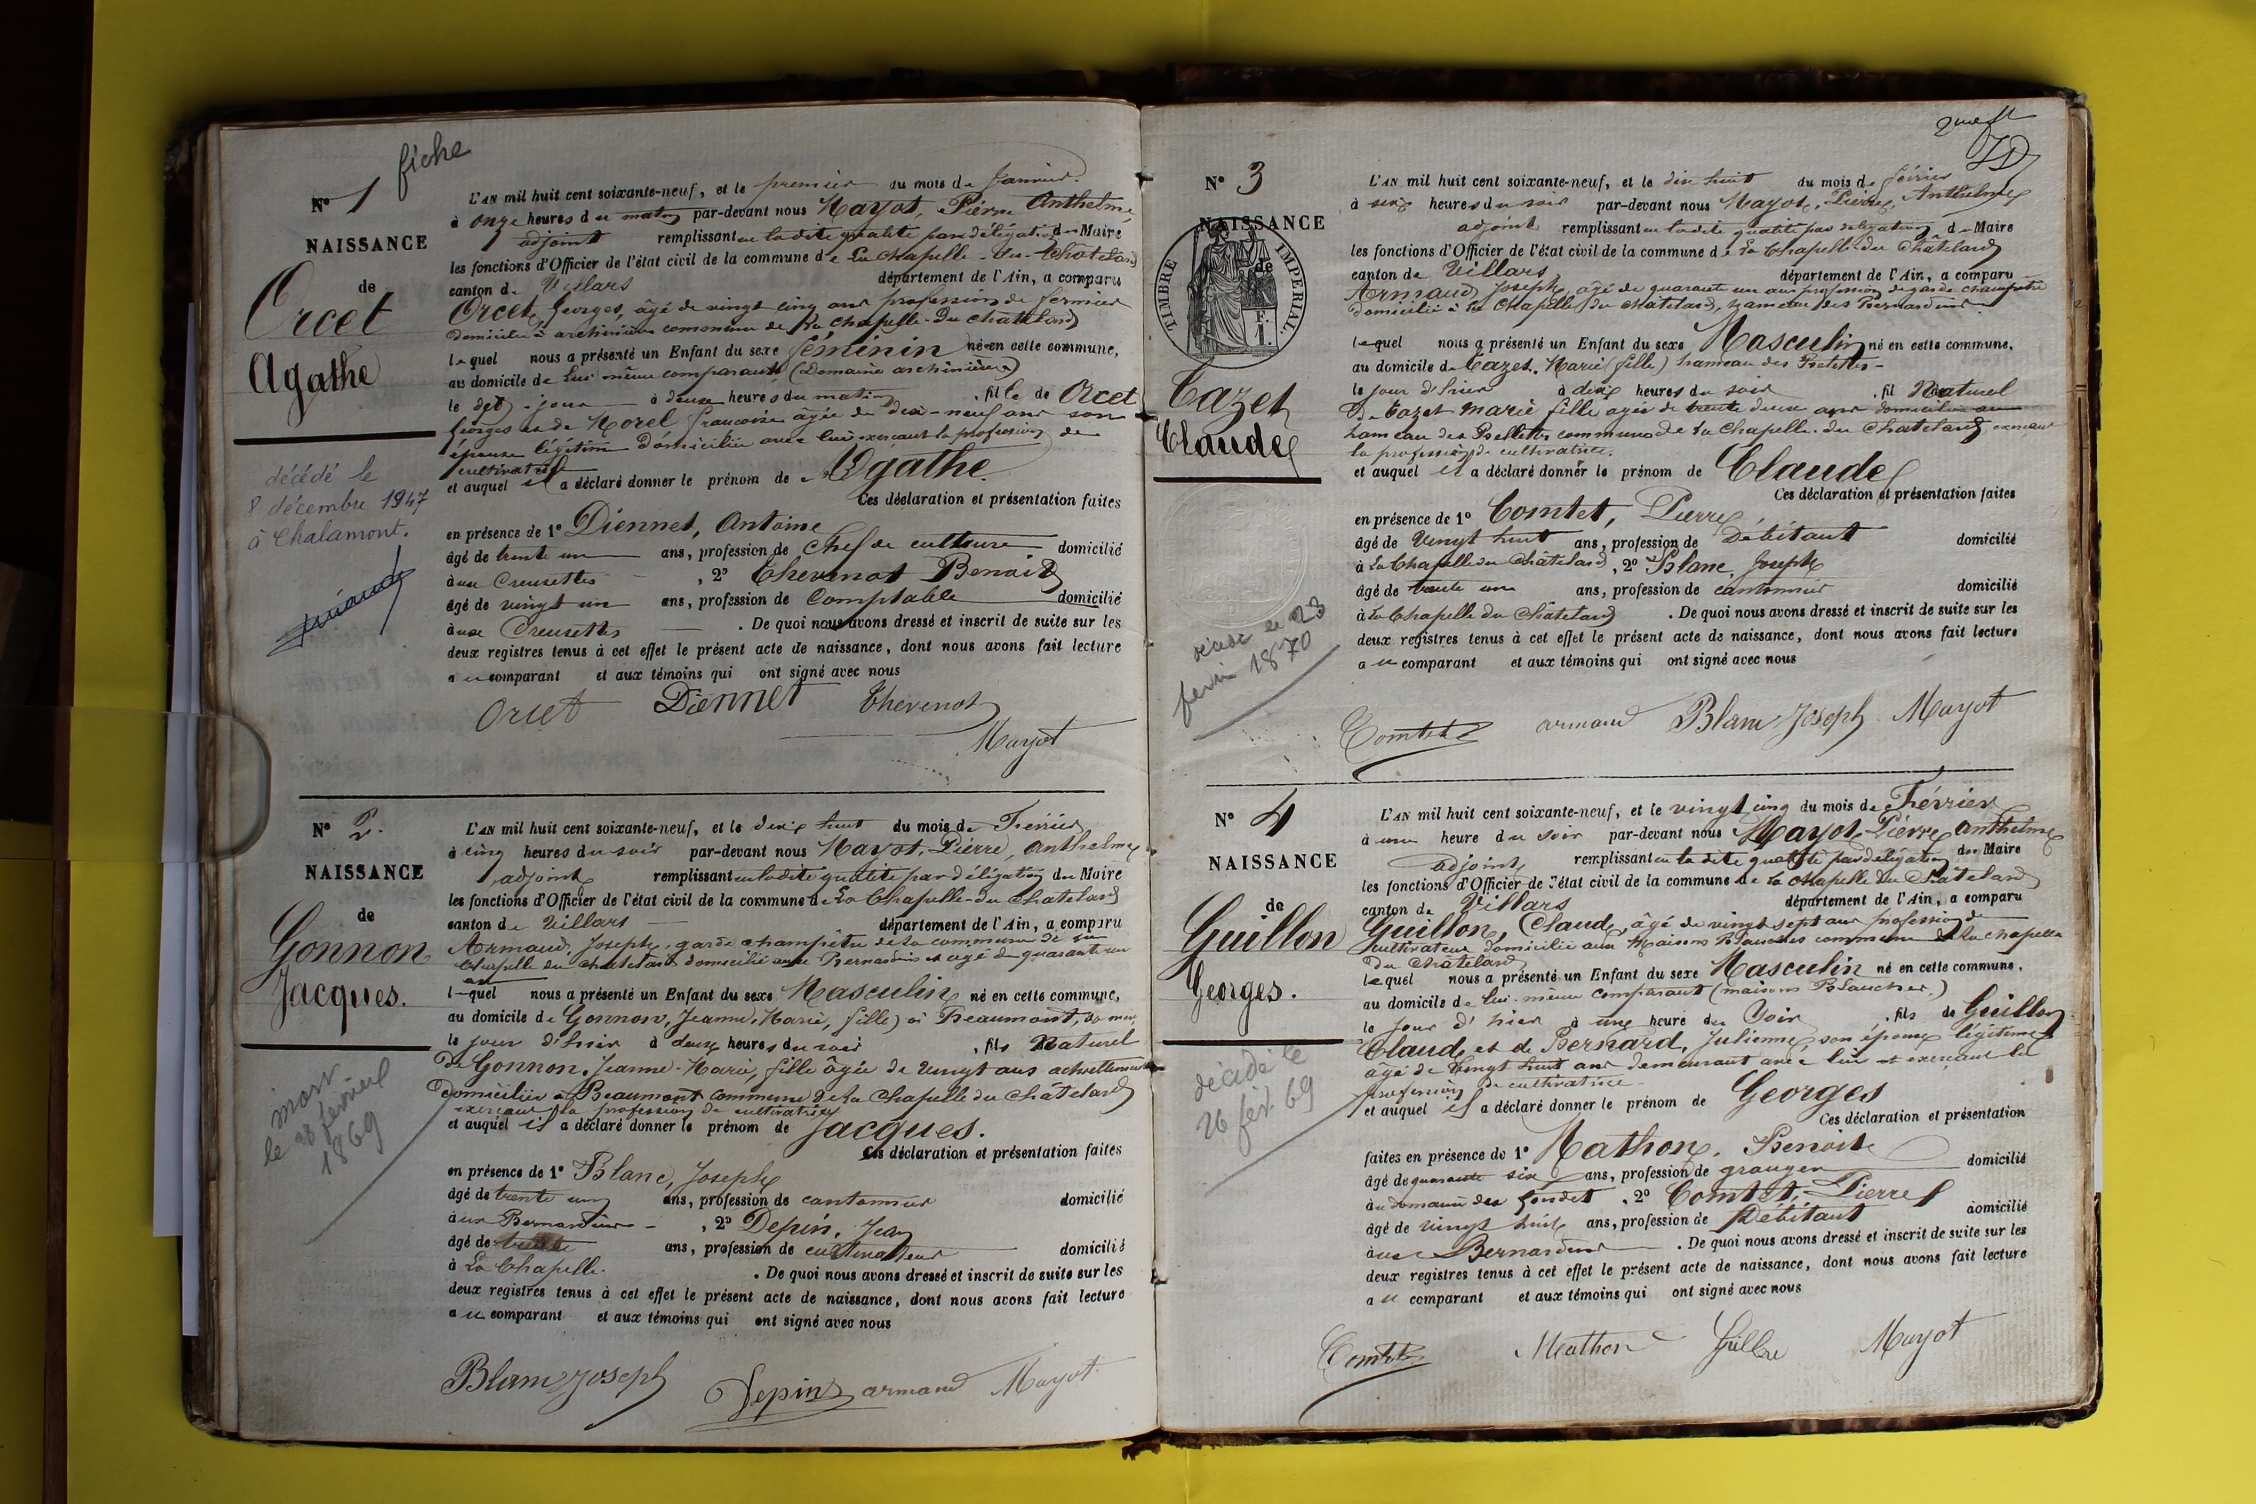 fiche
N° 1
NAISSANCE
de
Orcet
Agathe
décédé le
8 décembre 1947
à Chalamont.
L'AN mil huit cent soixante-neuf, et le premier du mois de Janvier
à onze heures du matin par-devant nous Mayot, Pierre Anthelme
adjoint remplissant en la dite qualité par délégation du Maire
les fonctions d'Officier de l'état civil de la commune de La Chapelle-du-Châtelard
canton de Villars département de l'Ain, a comparu
Orcet, Georges, âgé de vingt cinq ans profession de fermier
domicilié à commune de la Chapelle-du Châtelard
lequel nous a présenté un Enfant du sexe féminin né en cette commune,
au domicile de lui même comparant (Domaine
le dit jour à deux heures du matin, fille de Orcet
Georges et de Morel françoise âgée de dix-neuf ans son
épouse légitime Domiciliée avec lui exerçant la profession de
cultivatrice
et auquel il a déclaré donner le prénom de Agathe.
Ces déclaration et présentation faites
en présence de 1° Diennet, Antoine
âgé de trente un ans, profession de Chef de culture domicilié
aux Creusettes, 2° Thevenot Benoit
âgé de vingt un ans, profession de Comptable domicilié
aux Creusettes. De quoi nous avons dressé et inscrit de suite sur les
deux registres tenus à cet effet le présent acte de naissance, dont nous avons fait lecture
au comparant et aux témoins qui ont signé avec nous
Orcet Diennet Thevenot
Mayot
N° 2.
NAISSANCE
de
Gonnon
Jacques.
mort
le 28 février
1869
L'AN mil huit cent soixante-neuf, et le dix huit du mois de Février
à cinq heures du soir par-devant nous Mayot, Pierre, Anthelme
adjoint remplissant en la dite qualité par délégation du Maire
les fonctions d'Officier de l'état civil de la commune de La Chapelle-du Châtelard
canton de Villars département de l'Ain, a comparu
Armaud, Joseph, garde champêtre de la commune de la
Chapelle du Châtelard domicilié aux Bernardins et âgé de quarante un
ans
lequel nous a présenté un Enfant du sexe Masculin né en cette commune,
au domicile de Gonnon, Jeanne, Marie, fille) à Beaumont,
le jour d'hier à deux heures du soir, fils Naturel
De Gonnon, Jeanne-Marie, fille âgée de vingt ans actuellement
domiciliée à Beaumont commune de La Chapelle du Châtelard
exerçant la profession de cultivatrice
et auquel il a déclaré donner le prénom de Jacques.
Ces déclaration et présentation faites
en présence de 1° Blanc, Joseph
âgé de trente un ans, profession de cantonnier domicilié
aux Bernardins, 2° Depin, Jean
âgé de trente ans, profession de cultivateur domicilié
à La Chapelle. De quoi nous avons dressé et inscrit de suite sur les
deux registres tenus à cet effet le présent acte de naissance, dont nous avons fait lecture
au comparant et aux témoins qui ont signé avec nous
Blanc Joseph Depin armaud Mayot
N° 3
NAISSANCE
de
TIMBRE IMPERIAL.
Cazet
Claude
décédé le 23
1870
L'AN mil huit cent soixante-neuf, et le dix huit du mois de février
à six heures du soir par-devant nous Mayot, Pierre, Anthelme
adjoint remplissant en la dite qualité par délégation du Maire
les fonctions d'Officier de l'état civil de la commune de La Chapelle-du Châtelard
canton de Villars département de l'Ain, a comparu
Armaud Joseph, âgé de quarante un ans profession de garde champêtre
domicilié à la Chapelle du Châtelard, hameau des Bernardins.
lequel nous a présenté un Enfant du sexe Masculin né en cette commune,
au domicile de Cazet, Marie (fille) hameau des
le jour d'hier à dix heures du soir, fil Naturel
De Cazet Marie fille agée de trente deux ans domiciliée au
hameau des commune de La Chapelle-du Châtelard exerçant
la profession de cultivatrice.
et auquel il a déclaré donner le prénom de Claude
Ces déclaration et présentation faites
en présence de 1° Comtet, Pierre
âgé de vingt huit ans, profession de Débitant domicilié
à La Chapelle du Châtelard, 2° Blanc, Joseph
âgé de trente un ans, profession de cantonnier domicilié
à La Chapelle du Châtelard. De quoi nous avons dressé et inscrit de suite sur les
deux registres tenus à cet effet le présent acte de naissance, dont nous avons fait lecture
au comparant et aux témoins qui ont signé avec nous
Comtet armaud Blanc Joseph Mayot
N° 4
NAISSANCE
de
Guillon
Georges.
décédé le
26 fév. 69
L'AN mil huit cent soixante-neuf, et le vingt cinq du mois de Février
à une heure du soir par-devant nous Mayot Pierre Anthelme
adjoint remplissant en la dite qualité par délégation du Maire
les fonctions d'Officier de l'état civil de la commune de La Chapelle du Châtelard
canton de Villars département de l'Ain, a comparu
Guillon, Claude, âgé de vingt sept ans profession de
cultivateur domicilié aux Maisons Blanches commune de La Chapelle
Du Châtelard
lequel nous a présenté un Enfant du sexe Masculin né en cette commune,
au domicile de lui-même comparant (maisons Blanches.)
le jour d'hier à une heure du soir, fils de Guillon
Claude et de Bernard, Julienne, son épouse légitime
âgé de vingt huit ans demeurant avec lui et exerçant la
profession de cultivatrice
et auquel il a déclaré donner le prénom de Georges
Ces déclaration et présentation
faites en présence de 1° Mathon, Benoit
âgé de quarante six ans, profession de granger domicilié
au domaine des, 2° Comtet, Pierre
âgé de vingt huit ans, profession de Débitant domicilié
aux Bernardins. De quoi nous avons dressé et inscrit de suite sur les
deux registres tenus à cet effet le présent acte de naissance, dont nous avons fait lecture
au comparant et aux témoins qui ont signé avec nous
Comtet Mathon Mayot